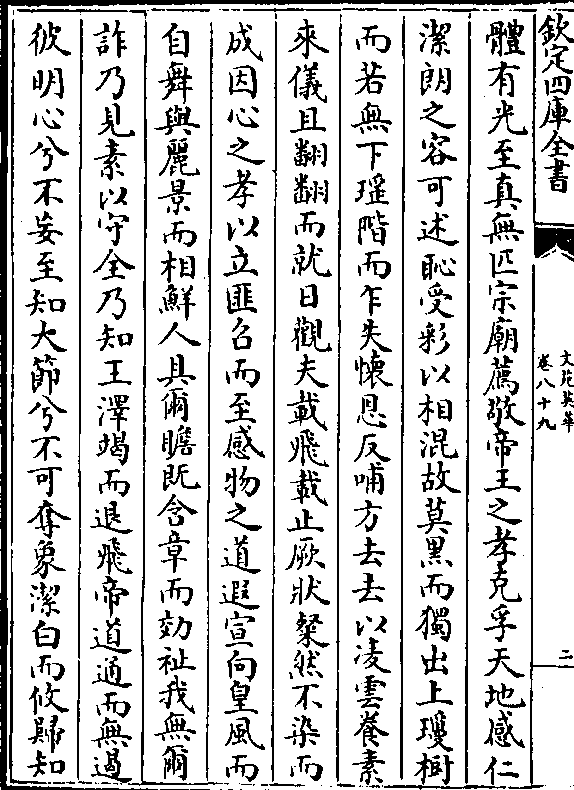 欽定四庫全書
文苑英華
卷八十九
二
體有光至真無匹宗廟薦敬帝王之孝克孚天地感仁
潔朗之容可述恥受彩以相混故莫黒而獨出上瓊樹
而若無下瑤階而乍失懷恩反哺方去去以凌雲養素
來儀且翻翻而就日觀夫載飛載止厥狀粲然不染而
成因心之孝以立匪召而至感物之道遐宣向皇風而
自舞與麗景而相鮮人具爾瞻既含章而効祉我無爾
詐乃見素以守全乃知王澤竭而退飛帝道通而無遏
彼明心兮不妄至知大節兮不可奪象潔白而攸歸知